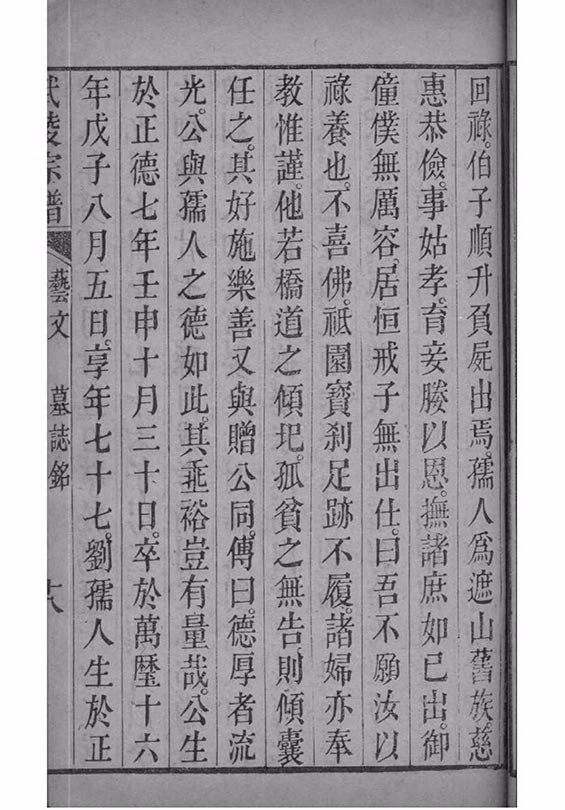 回祿伯子順升負屍出焉孺人爲遮山舊族慈
惠恭儉事姑孝育妾媵以恩撫諸庶如已出御
僮僕無厲容居恒戒子無出仕曰吾不願汝以
祿養也不喜佛祗園寶刹足跡不履諸婦亦奉
教惟謹他若橋道之傾圯孤貧之無告則傾囊
任之其好施樂善又與贈公同傳曰德厚者流
光公與孺人之德如此其垂裕豈有量哉公生
於正德七年壬申十月三十日卒於萬曆十六
年戊子八月五日享年七十七劉孺人生於正
武陵宗譜 藝文 墓誌銘 十八